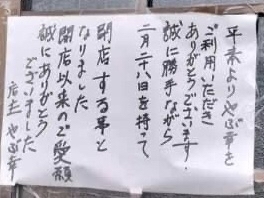 平素よりやぶ幸を
ご利用いただき
ありがとうございます。
誠に勝手ながら
二月二十八日を持って
閉店する事と
なりました
開店以来のご愛顧
誠にありがとう
ございました
店主 やぶ幸